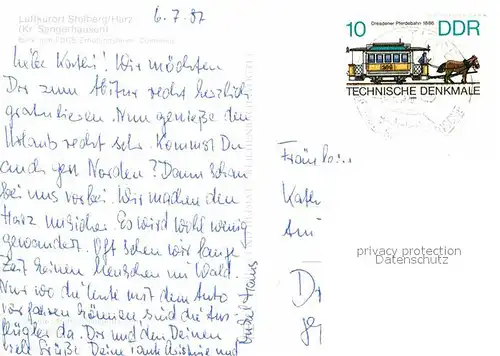 6.7.87
Luftkurort Stolberg/Harz
(Kr. Sangerhausen)
Dresdener Pferdebahn 1886
10 DDR
TECHNISCHE DENKMALE
Liebe Kathrin! Wir möchten
Dir zum Abitur recht herzlich
gratulieren. Nun genieße den
Urlaub recht sehr. Kommst Du
auch gen Norden? Dann schau
bei uns vorbei. Wir machen den
Harz unsicher. Es wird wohl wenig
gewandert. Oft sehen wir lange
Zeit keinen Menschen im Wald.
Nur wo die Leute mit dem Auto
vorfahren können, sind die Aus-
flügler da. Dir und den Deinen
viele Grüße Deine Tante Christine und
Onkel Hans
Fräulein
Kath
Am
privacy protection
Datenschutz